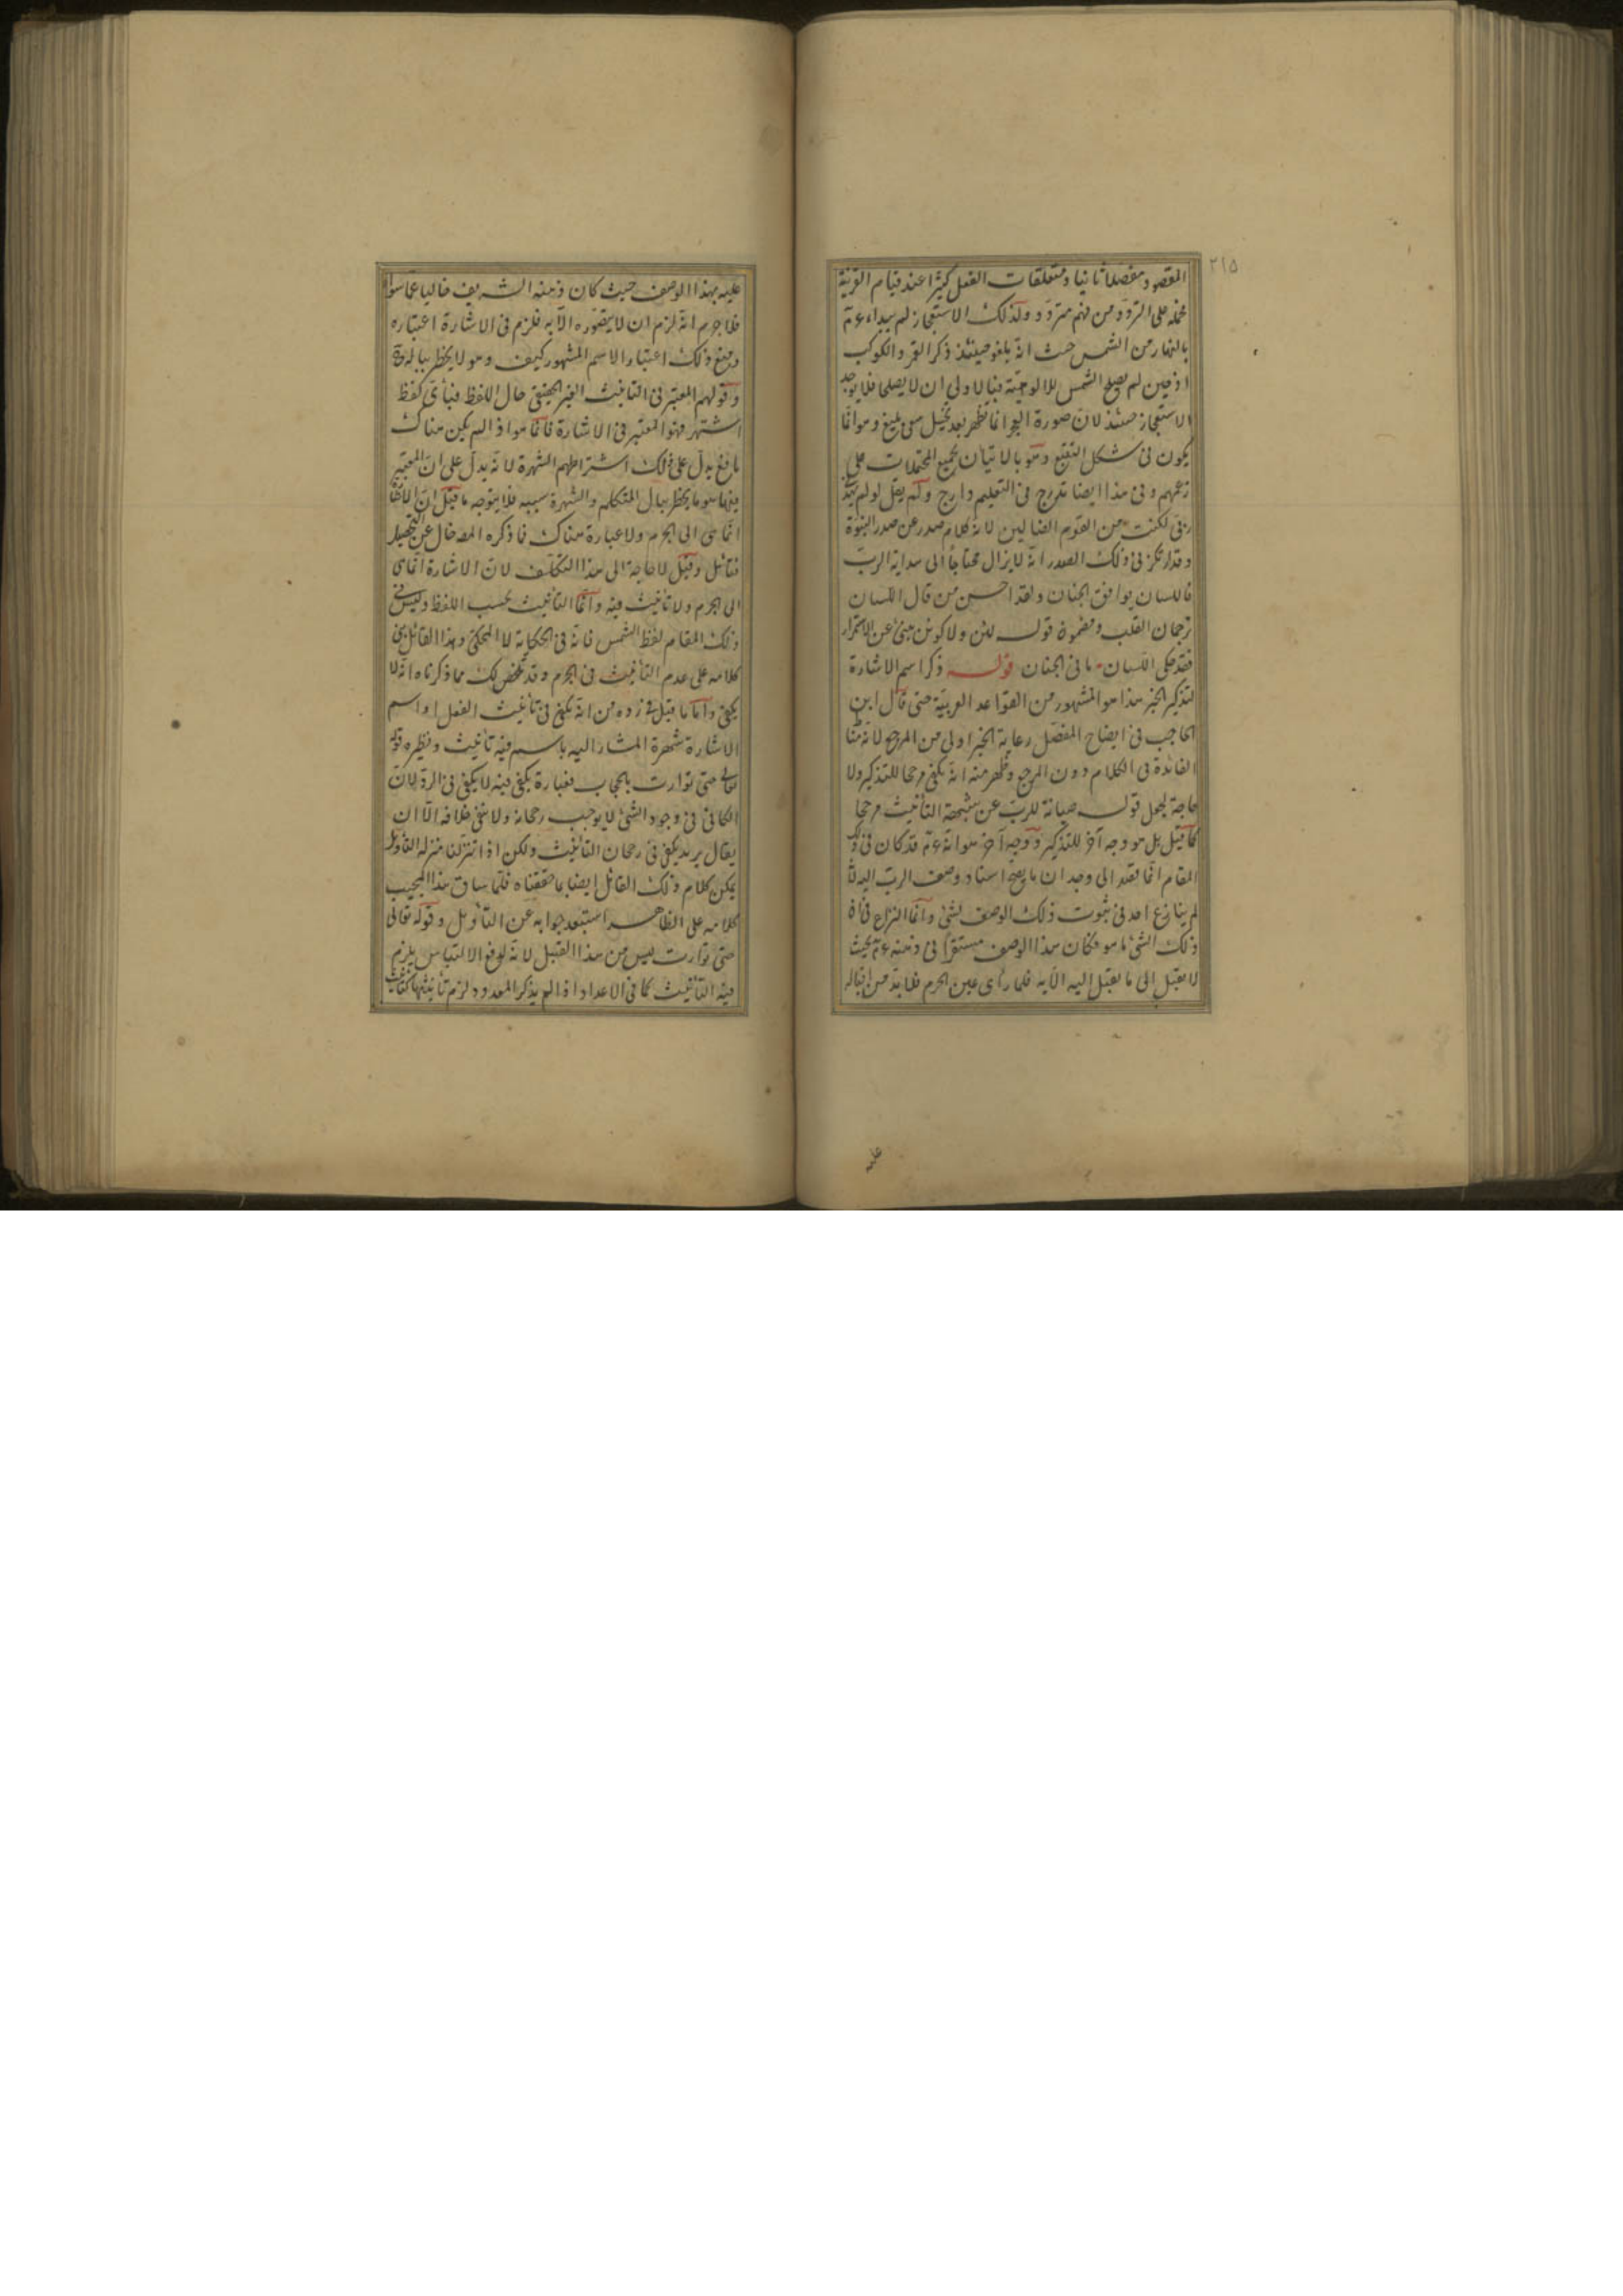 ٢١٥
المقصود مفصلا ثانيا ومتعلقات الفعل كثيرا عند قيام القرينة
محمله على التردد من فهم متردد وكذلك الاستعجاز لم يبداء عم
بالنهار من الشمس حيث انه يلغو حينئذ ذكر القمر والكوكب
اذ حين لم يصلح الشمس للالوهية فبالاولى ان لا يصلحا فلا يوجد
الاستعجاز حينئذ لان صورة العجز انما تظهر بعد تخيل سعى بليغ وهو انما
يكون فى شكل التتبع وهو بالاتيان بجميع المحتملات على
زعمهم وفى هذا ايضا تدرج فى التعليم دارج ولم يقل لو لم يهد
ربى لكنت من القوم الضالين لانه كلام صدر عن صدر النبوة
وقد ارتكز فى ذلك الصدر انه لا يزال محتاجا الى هداية الرب
فاللسان يوافق الجنان ولقد احسن من قال اللسان
ترجمان القلب ومضمون قوله لئن ولاكونن منبئ عن الاستمرار
فقد حكى اللسان ما فى الجنان قوله ذكر اسم الاشارة
لتذكير الخبر هذا هو المشهور من القواعد العربية حتى قال ابن
الحاجب فى ايضاح المفصل رعاية الخبر اولى من المرجع لانه مناط
الفائدة فى الكلام دون المرجع وظهر منه انه يكفى مرجحا للتذكير ولا
حاجة لجعل قوله صيانة للرب عن شبهة التأنيث مرجحا
كما قيل بل هو وجه آخر للتذكير ووجه آخر هو انه عم قد كان فى ذلك
المقام انما تصد الى وجدان ما يصح اسناد وصف الرب اليه لانه
لم ينازع احد فى ثبوت ذلك الوصف لشئ وانما النزاع فى ان
ذلك الشئ ما هو فكان هذا الوصف مستقرا فى ذهنه عم بحيث
لا يقبل الى ما يقبل اليه الا به فلما رأى عين الجرم فلا بد من اقباله
عليه
عليه بهذا الوصف حيث كان ذهنه الشريف خاليا عما سواه
فلا جرم انه لزم ان لا يتصوره الا به فلزم فى الاشارة اعتباره
ومنع ذلك اعتبار الاسم المشهور كيف وهو لا يخطر بباله
وقولهم المعتبر فى التانيث الغير الحقيقى حال اللفظ فبأى لفظ
اشتهر فهو المعتبر فى الاشارة فانما هو اذا لم يكن هناك
مانع يدل على ذلك اشتراطهم الشهرة لانه يدل على ان المعتبر
فيها هو ما يخطر ببال المتكلم والشهرة سببه فلا يتوجه ما قيل ان الاشارة
انما هى الى الجرم ولا عبارة هناك فما ذكره المص خال عن التحصيل
فتأمل وقيل لا حاجة الى هذا التكلف لان الاشارة انما هى
الى الجرم ولا تأنيث فيه وانما التأنيث بحسب اللفظ وليس فى
ذلك المقام لفظ الشمس فانه فى الحكاية لا المحكى وهذا القائل بنى
كلامه على عدم التأنيث فى الجرم وقد تلخص لك مما ذكرناه انه لا
يكفى واما ما قيل فى رده من انه يكفى فى تأنيث الفعل او اسم
الاشارة شهرة المشار اليه باسم فيه تأنيث ونظيره قوله
تعالى حتى توارت بالحجاب فعبارة يكفى فيه لا يكفى فى الرد لان
الكافى فى وجود الشئ لا يوجب رجحانه ولا ينفى خلافه الا ان
يقال يريد يكفى فى رجحان التانيث ولكن اذا تنزلنا منزله التأويل
يمكن كلام ذلك القائل ايضا ما حققناه فلما ساق هذا المجيب
كلامه على الظاهر استبعد جوابه عن التأويل وقوله تعالى
حتى توارت ليس من هذا القبيل لانه لوقع الالتباس يلزم
فيه التأنيث كما فى الاعداد اذا لم يذكر المعدود لزم تأنيثها